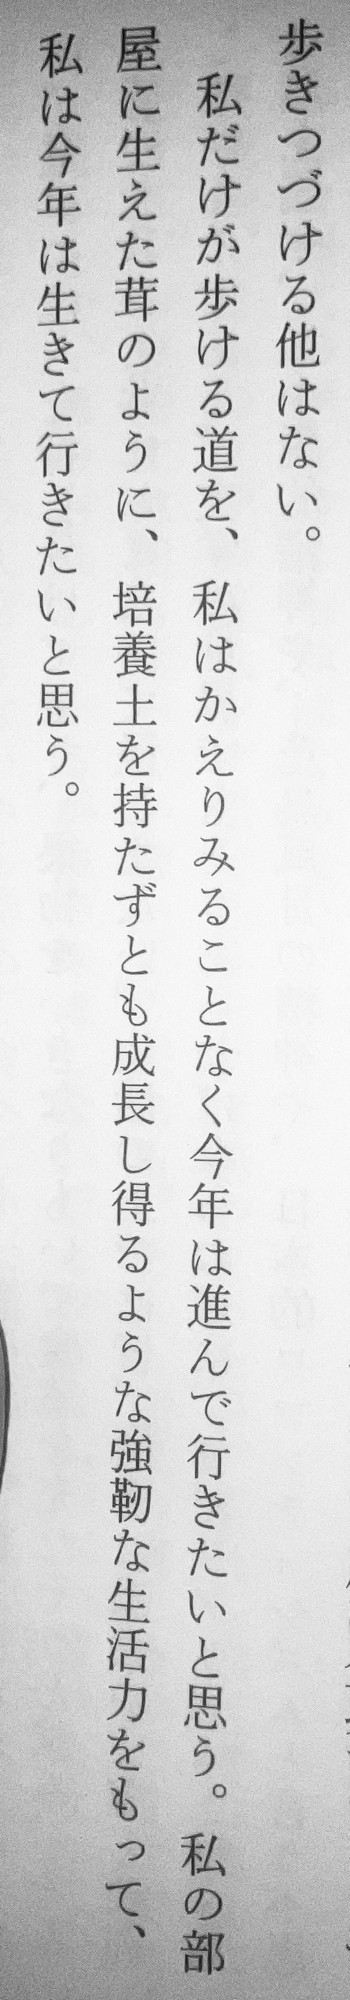 歩きつづける他はない。
私だけが歩ける道を、私はかえりみることなく今年は進んで行きたいと思う。私の部
屋に生えた茸のように、培養土を持たずとも成長し得るような強靭な生活力をもって、
私は今年は生きて行きたいと思う。